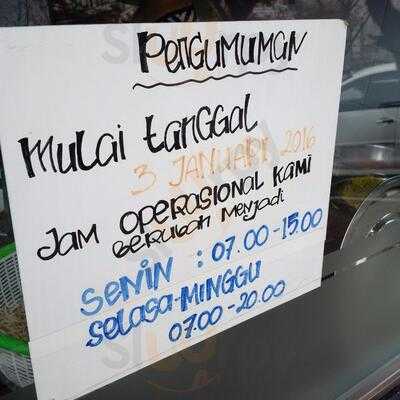 PENGUMUMAN
Mulai tanggal
3 JANUARI 2016
JAM OPERASIONAL KAMI
BERUBAH Menjadi
SENIN : 07.00-15.00
SELASA-MINGGU
07.00-20.00